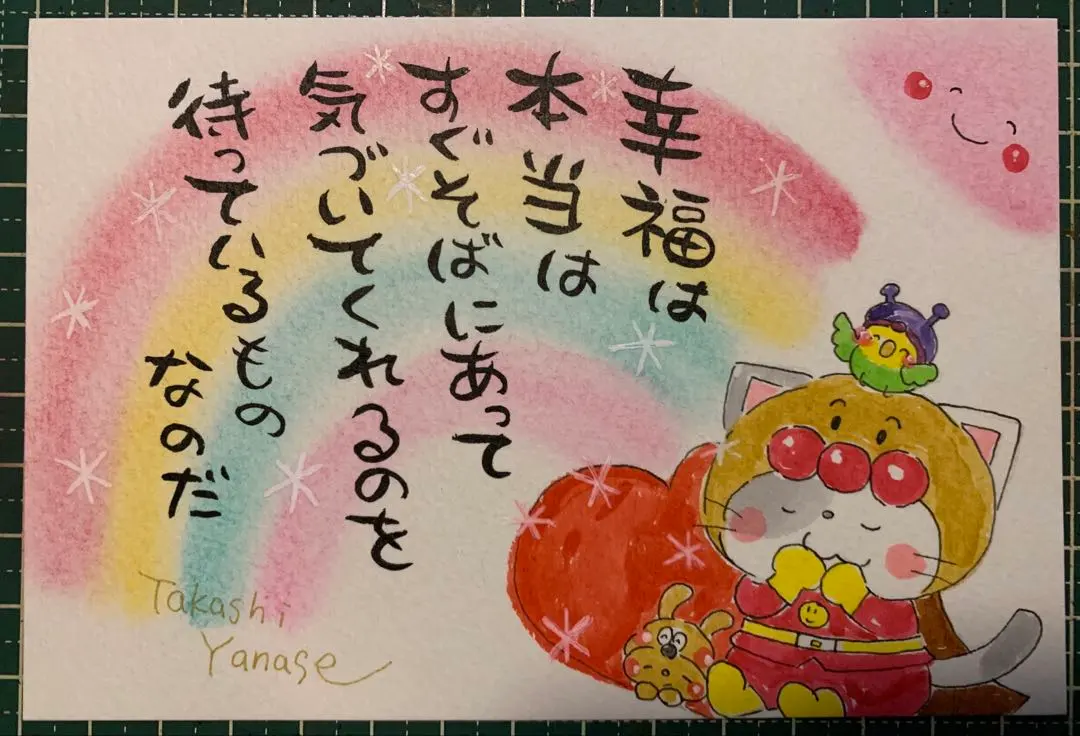 幸福は
本当は
すぐそばにあって
気づいてくれるのを
待っているもの
なのだ
Takashi
Yanase